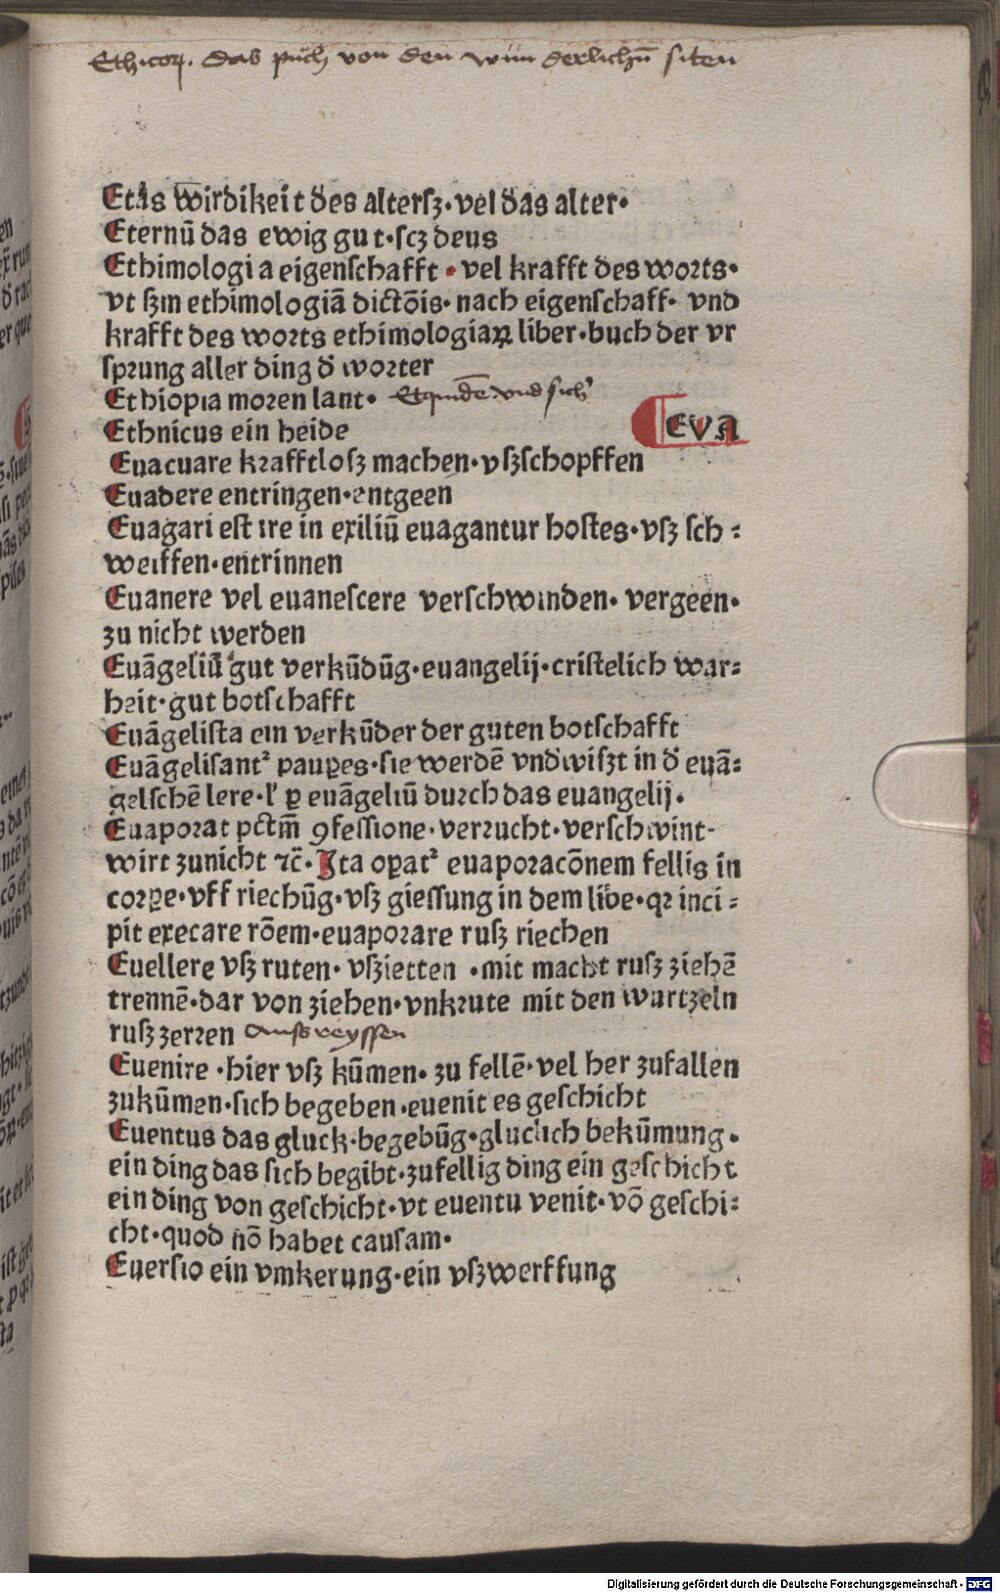 Ethicoꝝ. das puch von den wunderlichn̄ siten
Etas wirdikeit des altersz·vel das alter·
Eternū das ewig gut·scz deus
Ethimologia eigenschafft·vel krafft des worts·
vt szm ethimologiā dictōis·nach eigenschaff·vnd
krafft des worts ethimologiaꝝ liber·buch der vr
sprung aller ding d̄ worter
Ethiopia moren lant· Etquidē vnd sich'
Ethnicus ein heide
EVA
Euacuare krafftlosz machen·vszschopffen
Euadere entringen·entgeen
Euagari est ire in exiliū euagantur hostes·vsz sch⸗
weiffen·entrinnen
Euanere vel euanescere verschwinden·vergeen·
zu nicht werden
Euāgeliū gut verkūdūg·euangelij·cristelich war⸗
heit·gut botschafft
Euāgelista ein verkūder der guten botschafft
Euāgelisantˀ pauꝑes·sie werdē vndwiszt in d̄ euā⸗
gelschē lere·l' ꝑ euāgeliū durch das euangelij·
Euaporat pctm̄ ꝯfessione·verrucht·verschwint·
wirt zunicht ⁊c̄·Ita oꝑatˀ euaporacōnem fellis in
corꝑe·vff riechūg·vsz giessung in dem libe·qꝛ inci⸗
pit execare rōem·euaporare rusz riechen
Euellere vsz ruten·vszietten·mit macht rusz ziehē
trennē·dar von ziehen·vnkrute mit den wurtzeln
rusz zerren Aussreyssen
Euenire·hier vsz kūmen·zu fellē·vel her zufallen
zukūmen·sich begeben·euenit es geschicht
Euentus das gluck·begebūg·gluclich bekūmung·
ein ding das sich begibt·zufellig ding ein geschicht
ein ding von geschicht·vt euentu venit·vō geschi⸗
cht·quod nō habet causam·
Euersio ein vmkerung·ein vszwerffung
Digitalisierung gefördert durch die Deutsche Forschungsgemeinschaft - DFG